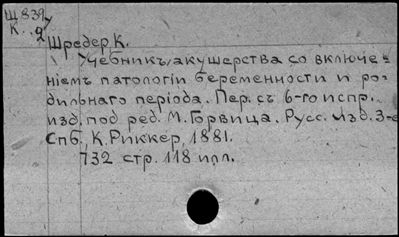 Щ 839
К..2
Шредер К.
Учебникъ акушерства со включе-
нiемъ патологiи беременности и ро-
дильнаго перiода. Пер. съ 6-го испр.
изд. под ред. М. Горвица. Русс. изд. 3-е
Спб., К. Риккер, 1881.
732 стр. 118 илл.